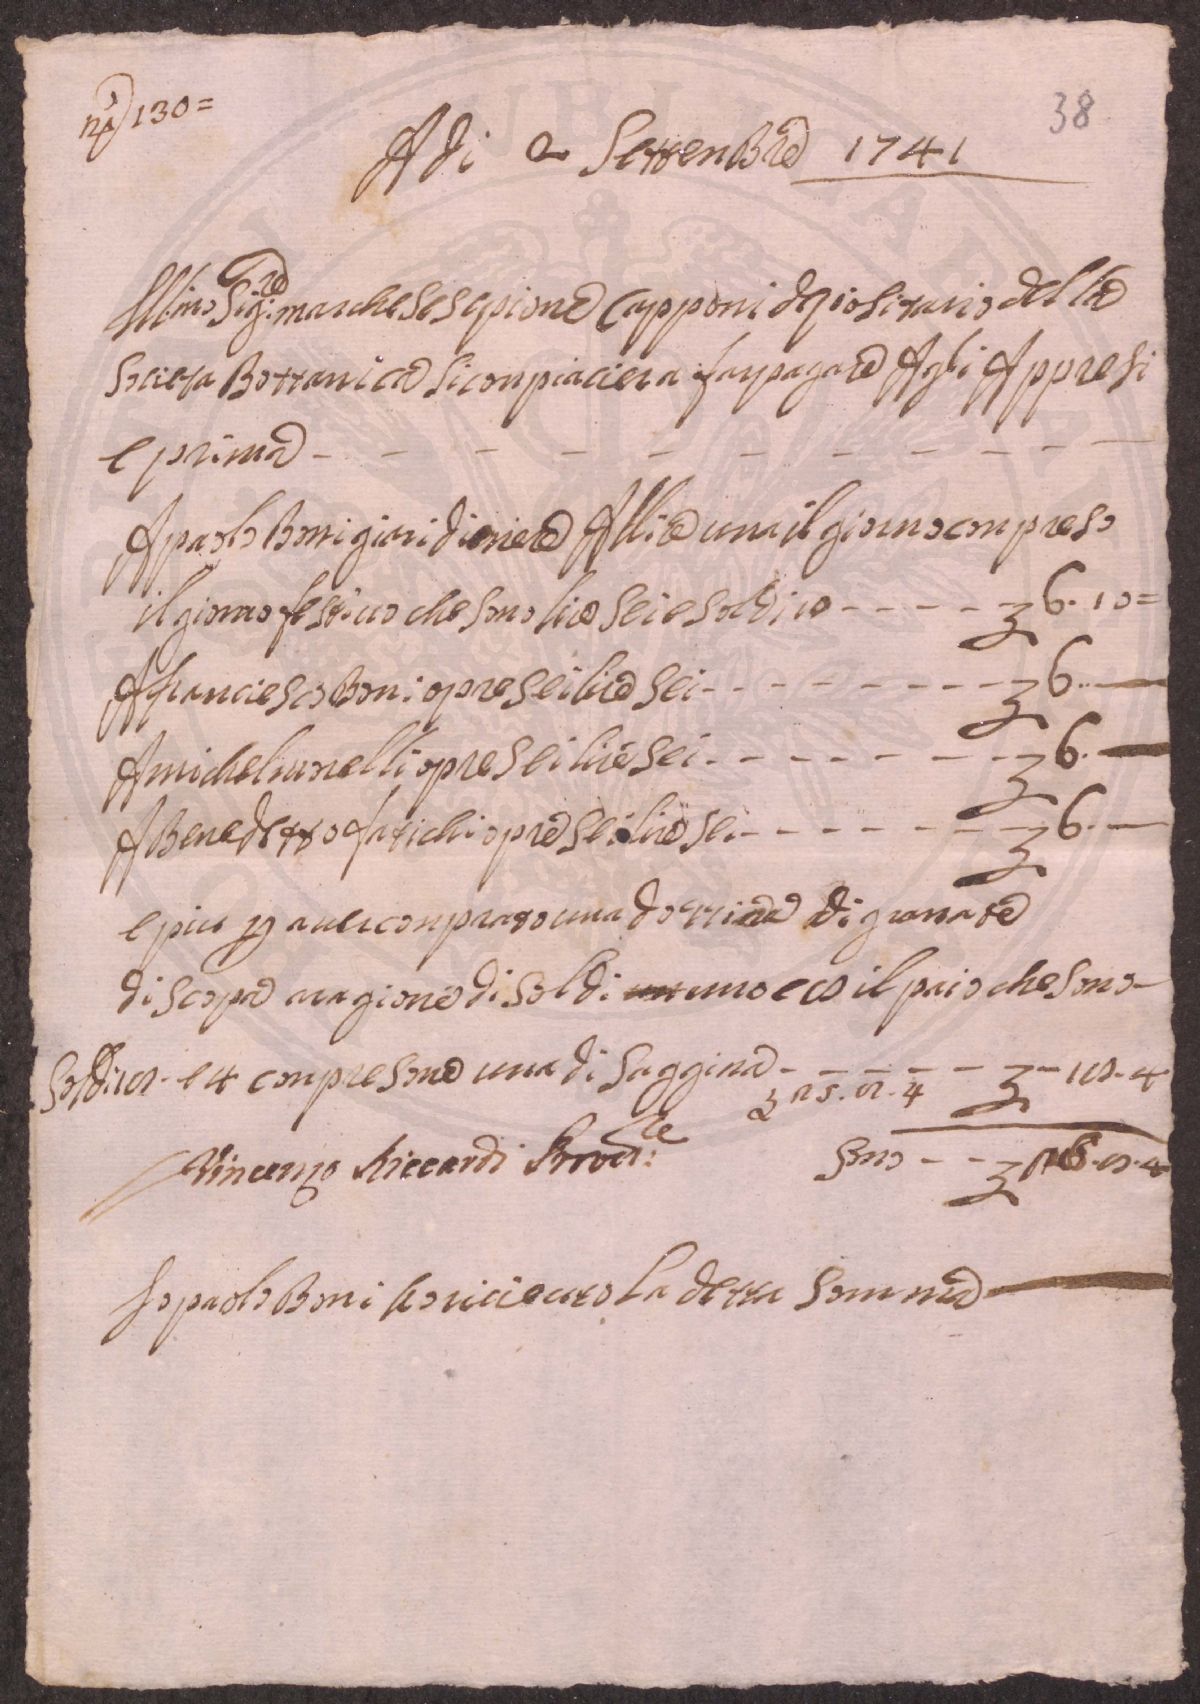 n.º 130=
38
Adi 2 Settenbre 1741
Ill.mo Sig.re marchese Scipione Capponi depositario della
Societa Bottanica si conpiaciera far pagare Agli Appresi
e prima
A paolo Boni giaridiniere A llire una il giorno conpreso
il giorno festiuo che sono lire sei e soldi 10 6. 10=
A franciesco Boni opre sei lire sei 6.
A michel opre sei lire sei 6.
A Benedetto fatichi opre sei lire sei 6.
e piu p aver conprato una dozzina di granate
di scopa a ragione di soldi uno e il paio che sono
soldi e 4 conpresone una di saggina 4
4
Vincenzo Riccardi Provd.re
sono 4
Io paolo Boni ho riceuto La detta somma